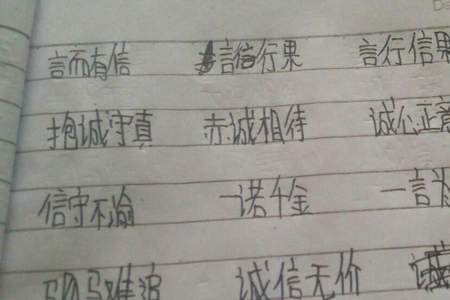 言而有信 言信行果 言行信果
抱诚守真 赤诚相待 诚心正意
信守不渝 一诺千金 一言为
驷马难追 诚信无价 诚